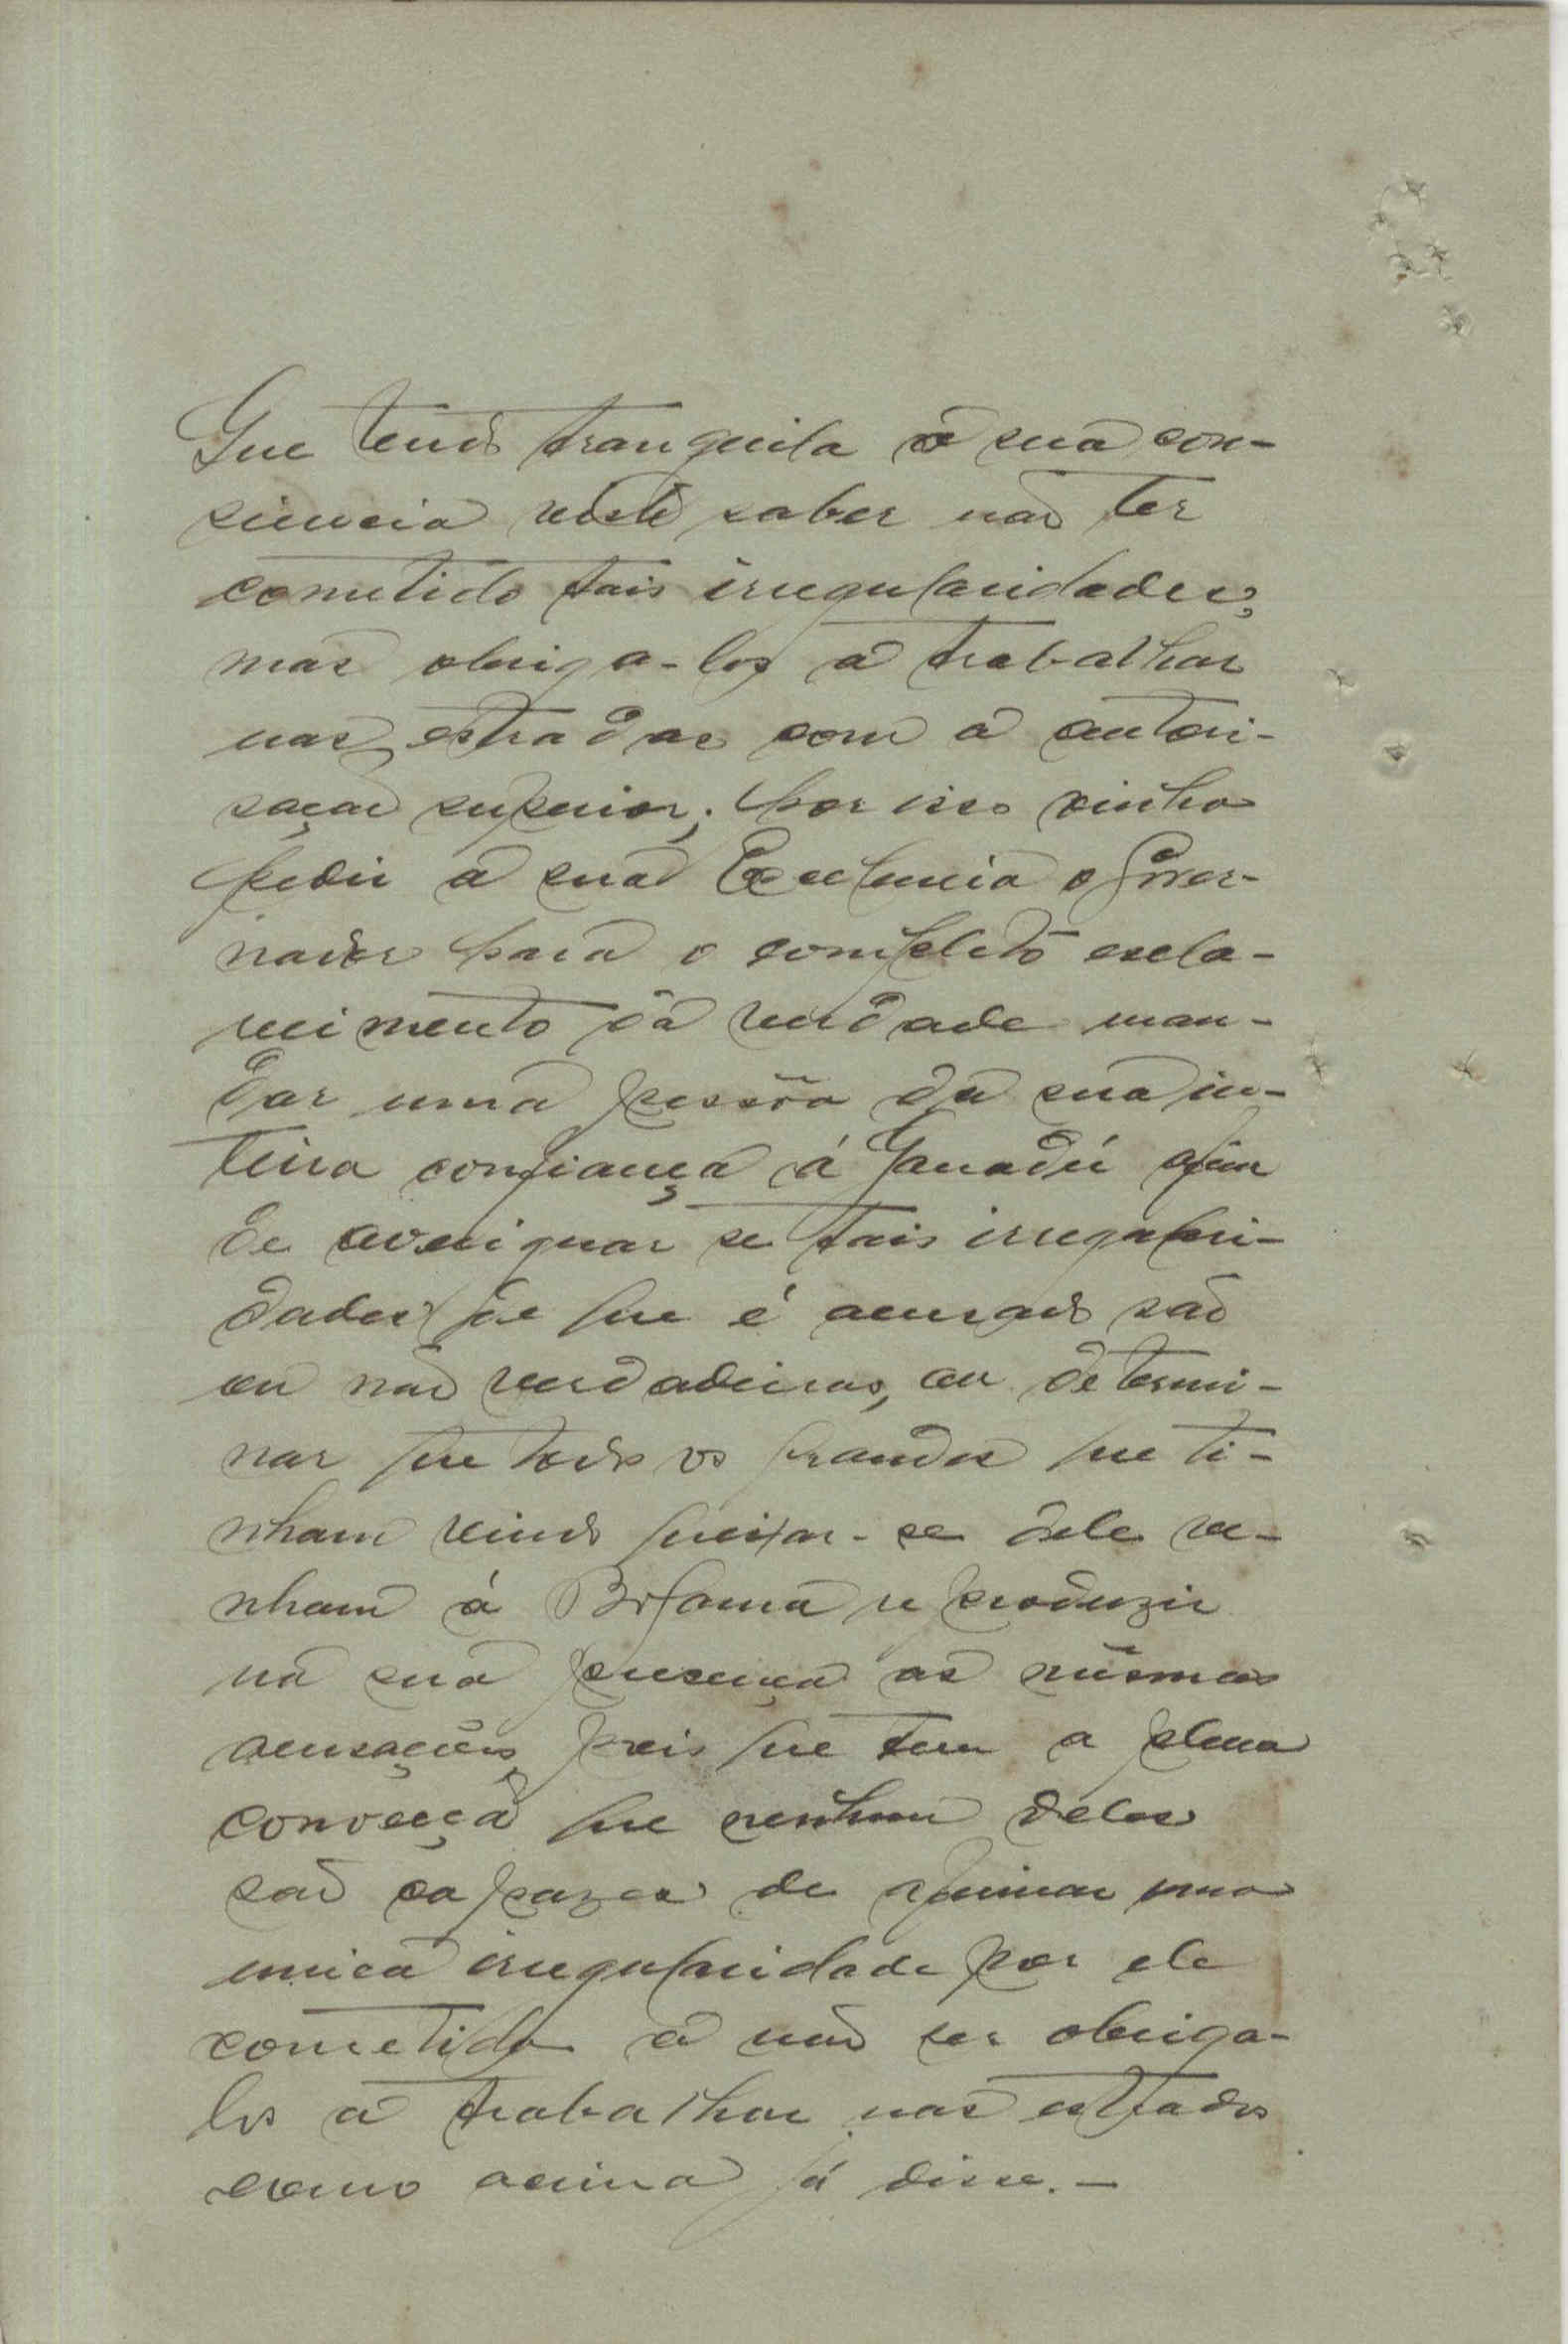 Que tendo tranquila a sua con-
siencia visto saber não ter
cometido tais irregularidades,
mas obriga-los a trabalhar
nas estradas com a autori-
sação superior; por isso vinha
pedir a sua Excelencia o Gover-
nador para o completo escla-
recimento da verdade man-
dar uma pessôa da sua in-
teira confiança á Ganadú afim
de averiguar se tais irregulari-
dades de que é acusado são
ou não verdadeiras, ou determi-
nar que todos os grandes que ti-
nham vindo queixar-se dele ve-
nham á Bolama reproduzir
na sua presença as mesmas
acusações, pois que tem a plena
convecção que nenhum deles
são capazes de afirmar uma
unica irregularidade por ele
cometida a não ser obriga-
los a trabalhar nas estradas
como acima já disse.-